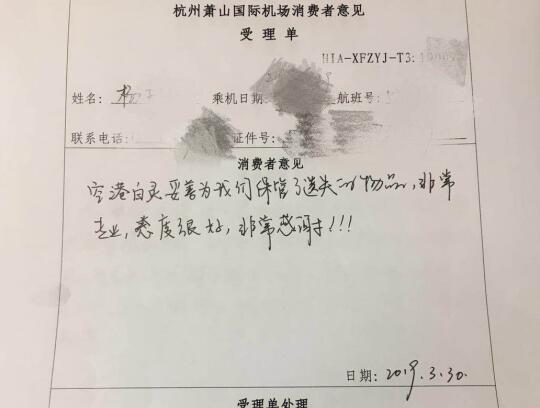 杭州萧山国际机场消费者意见
受理单
HIA-XFZYJ-T3:
姓名: 乘机日期 航班号:
联系电话: 证件号:
消费者意见
空港白灵妥善为我们保管了遗失的物品,非常
专业,态度很好,非常感谢!!!
日期: 2019.3.30.
受理单处理